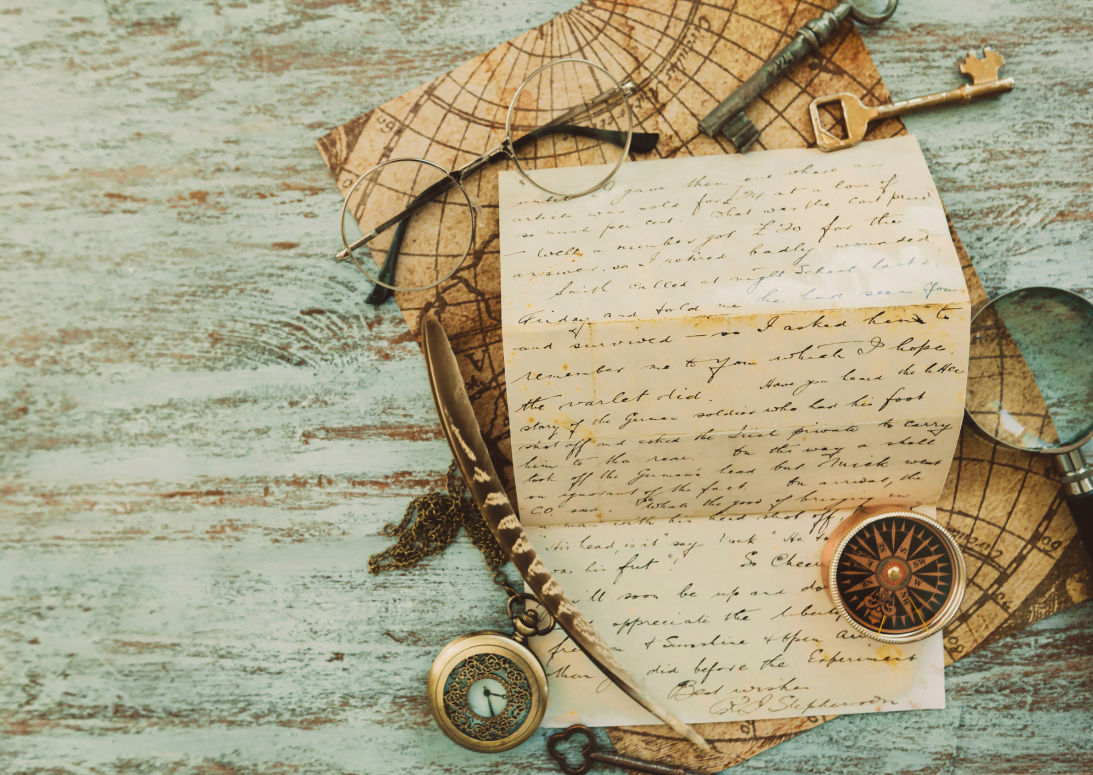 I gave them one whose
article was sold for at a love if
so much per cent. That was the cost price
- Well a number got £ 30 for the
answer. so I retired badly wounded.
Smith called at night School last
Friday and told me he had seen you
and survived - so I asked him to
remember me to you which I hope
the varlet did. Have you heard the little
story of the German soldier who had his foot
shot off and asked the Irish private to carry
him to the rear. On the way a shell
took off the German's head but Mick went
on ignorant of the fact. On arrival, the
C.O. said, "Whats the good of bringing in
a man with his head shot off
his head, is it" say
was his feet" So Chee
ll soon be up and do
appreciate the liberty
fre & Sunshine & Open Ai
than did before the Experiment
Best wishes
Stephenson
SW
W